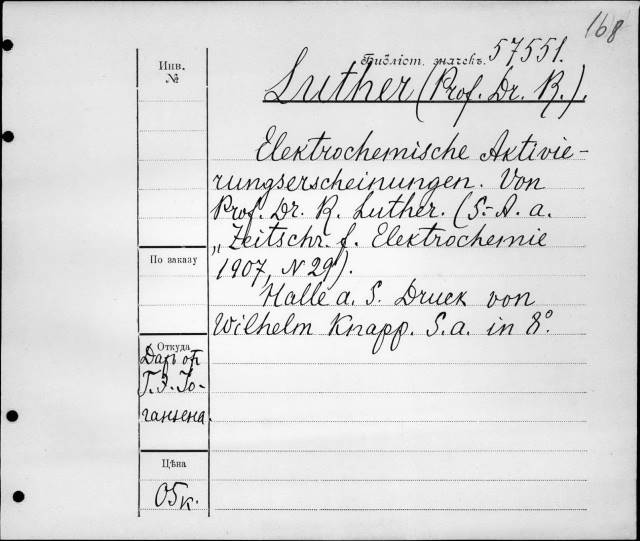 168
Библіот. значекъ. 57551.
Инв.
№
Luther (Prof. Dr. R.).
Elektrochemische Aktivie-
rungserscheinungen. Von
Prof. Dr. R. Luther. (S.-A. a.
„Zeitschr. f. Elektrochemie
По заказу
1907, N 29).
Halle a. S. Druck von
Wilhelm Knapp. S. a. in 8°.
Откуда
Даръ отъ
Г. Э. Іо-
гансена.
Цѣна
05 к.